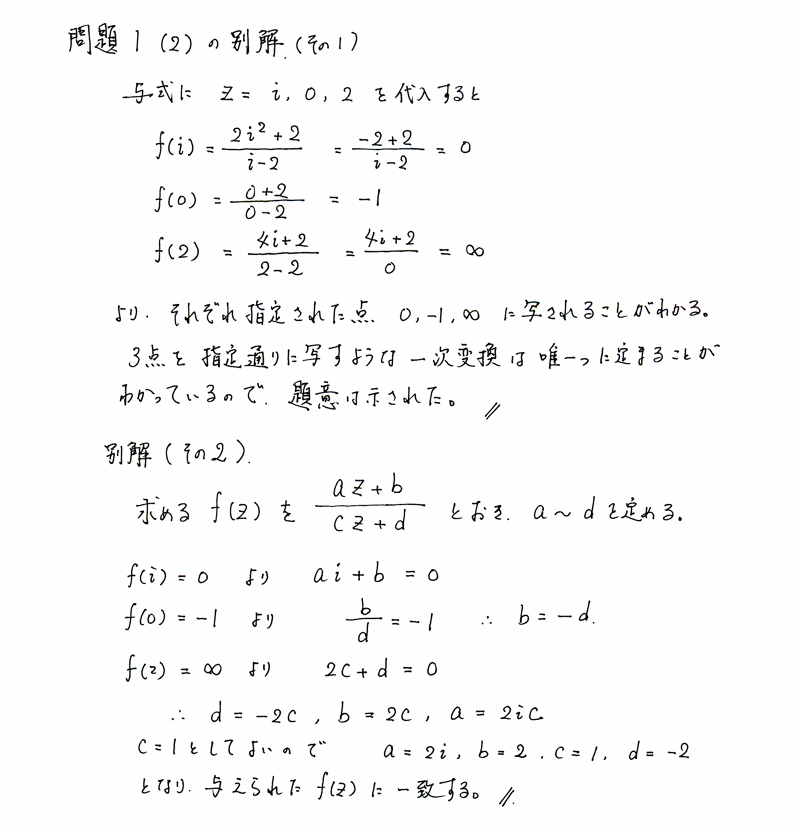 問題1 (2) の別解 (その1)
与式に z = i, 0, 2 を代入すると
f(i) = \frac{2i^2+2}{i-2} = \frac{-2+2}{i-2} = 0
f(0) = \frac{0+2}{0-2} = -1
f(2) = \frac{4i+2}{2-2} = \frac{4i+2}{0} = ∞
より、それぞれ指定された点 0, -1, ∞ に写されることがわかる。
3点を指定通りに写すような一次変換は唯一つに定まることが
わかっているので、題意は示された。 //
別解 (その2).
求める f(z) を \frac{az+b}{cz+d} とおき、a ~ d を定める。
f(i) = 0 より ai + b = 0
f(0) = -1 より \frac{b}{d} = -1 ∴ b = -d.
f(2) = ∞ より 2c + d = 0
∴ d = -2c , b = 2c , a = 2ic
c = 1 としてよいので a = 2i, b = 2, c = 1, d = -2
となり、与えられた f(z) に一致する。 //